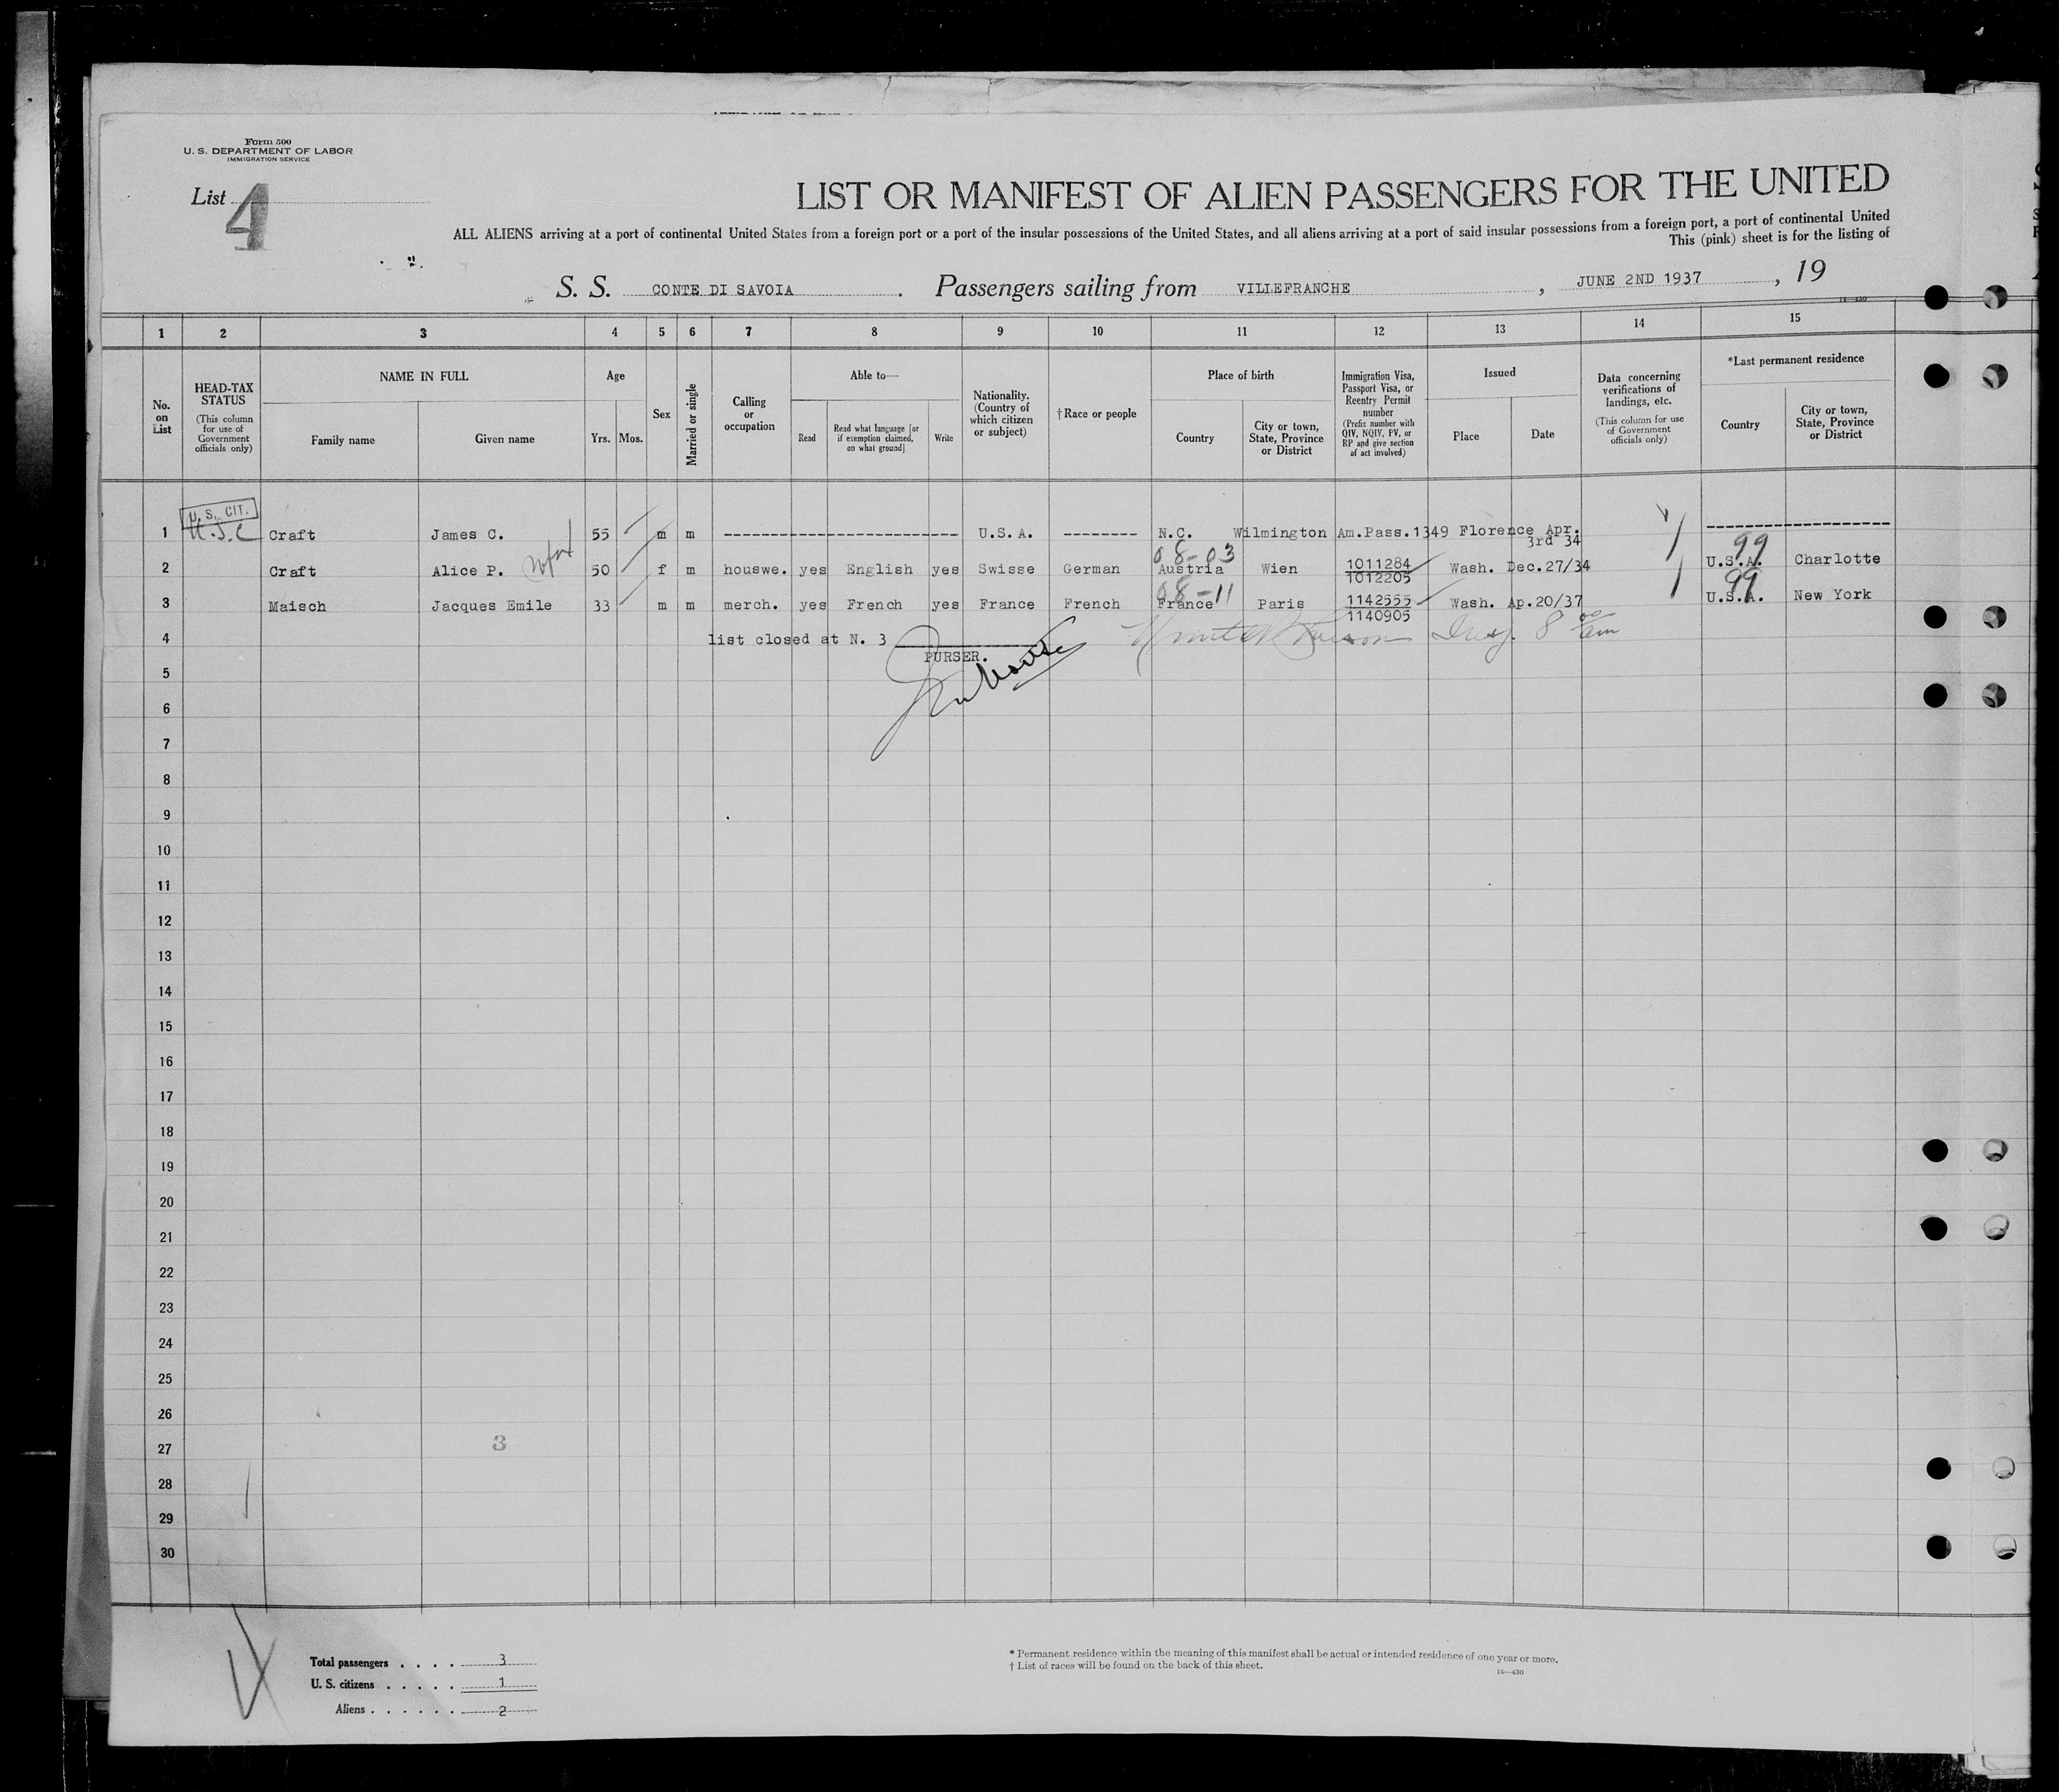 Form 500
U. S. DEPARTMENT OF LABOR
IMMIGRATION SERVICE
List 4
LIST OR MANIFEST OF ALIEN PASSENGERS FOR THE UNITED
ALL ALIENS arriving at a port of continental United States from a foreign port or a port of the insular possessions of the United States, and all aliens arriving at a port of said insular possessions from a foreign port, a port of continental United
This (pink) sheet is for the listing of
S. S. CONTE DI SAVOIA. Passengers sailing from VILLEFRANCHE, JUNE 2ND 1937, 19
14—430
1 2 3 4 5 6 7 8 9 10 11 12 13 14 15
No. on List
HEAD-TAX STATUS (This column for use of Government officials only)
NAME IN FULL
Family name
Given name
Age
Yrs. Mos.
Sex
Married or single
Calling or occupation
Able to—
Read
Read what language [or if exemption claimed, on what ground]
Write
Nationality. (Country of which citizen or subject)
†Race or people
Place of birth
Country
City or town, State, Province or District
Immigration Visa, Passport Visa, or Reentry Permit number (Prefix number with QIV, NQIV, PV, or RP and give section of act involved)
Issued
Place
Date
Data concerning verifications of landings, etc. (This column for use of Government officials only)
*Last permanent residence
Country
City or town, State, Province or District
U. S. CIT.
1 U.S.C Craft James C. 55 m m U.S.A. N.C. Wilmington Am.Pass.1349 Florence Apr. 3rd 34
08-03 99
2 Craft Alice P. 50 f m houswe. yes English yes Swisse German Austria Wien 1011284 1012205 Wash. Dec.27/34 U.S.A. Charlotte
08-11 99
3 Maisch Jacques Emile 33 m m merch. yes French yes France French France Paris 1142555 1140905 Wash. Ap.20/37 U.S.A. New York
4 list closed at N. 3
PURSER.
5
6
7
8
9
10
11
12
13
14
15
16
17
18
19
20
21
22
23
24
25
26
27
3
28
29
30
Total passengers . . . . 3
U. S. citizens . . . . . 1
Aliens . . . . . . 2
* Permanent residence within the meaning of this manifest shall be actual or intended residence of one year or more.
† List of races will be found on the back of this sheet.
14—430